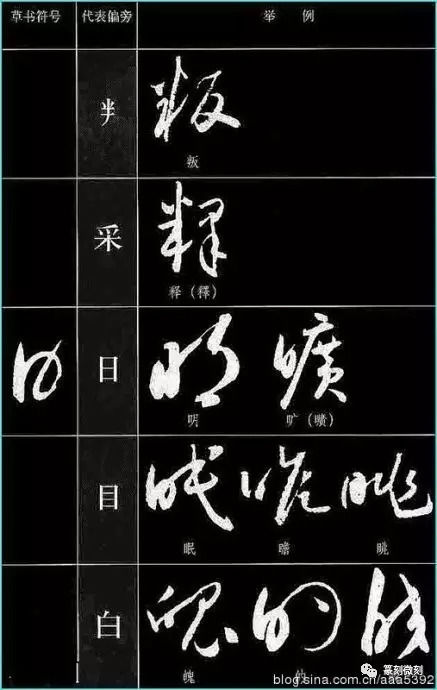 草书符号 代表偏旁 举例
叛
釆
释（釋）
日
明 旷（曠）
目
眠 瞻 眺
白
魄 的
篆刻微刻
blog.sina.com.cn/aaa5392